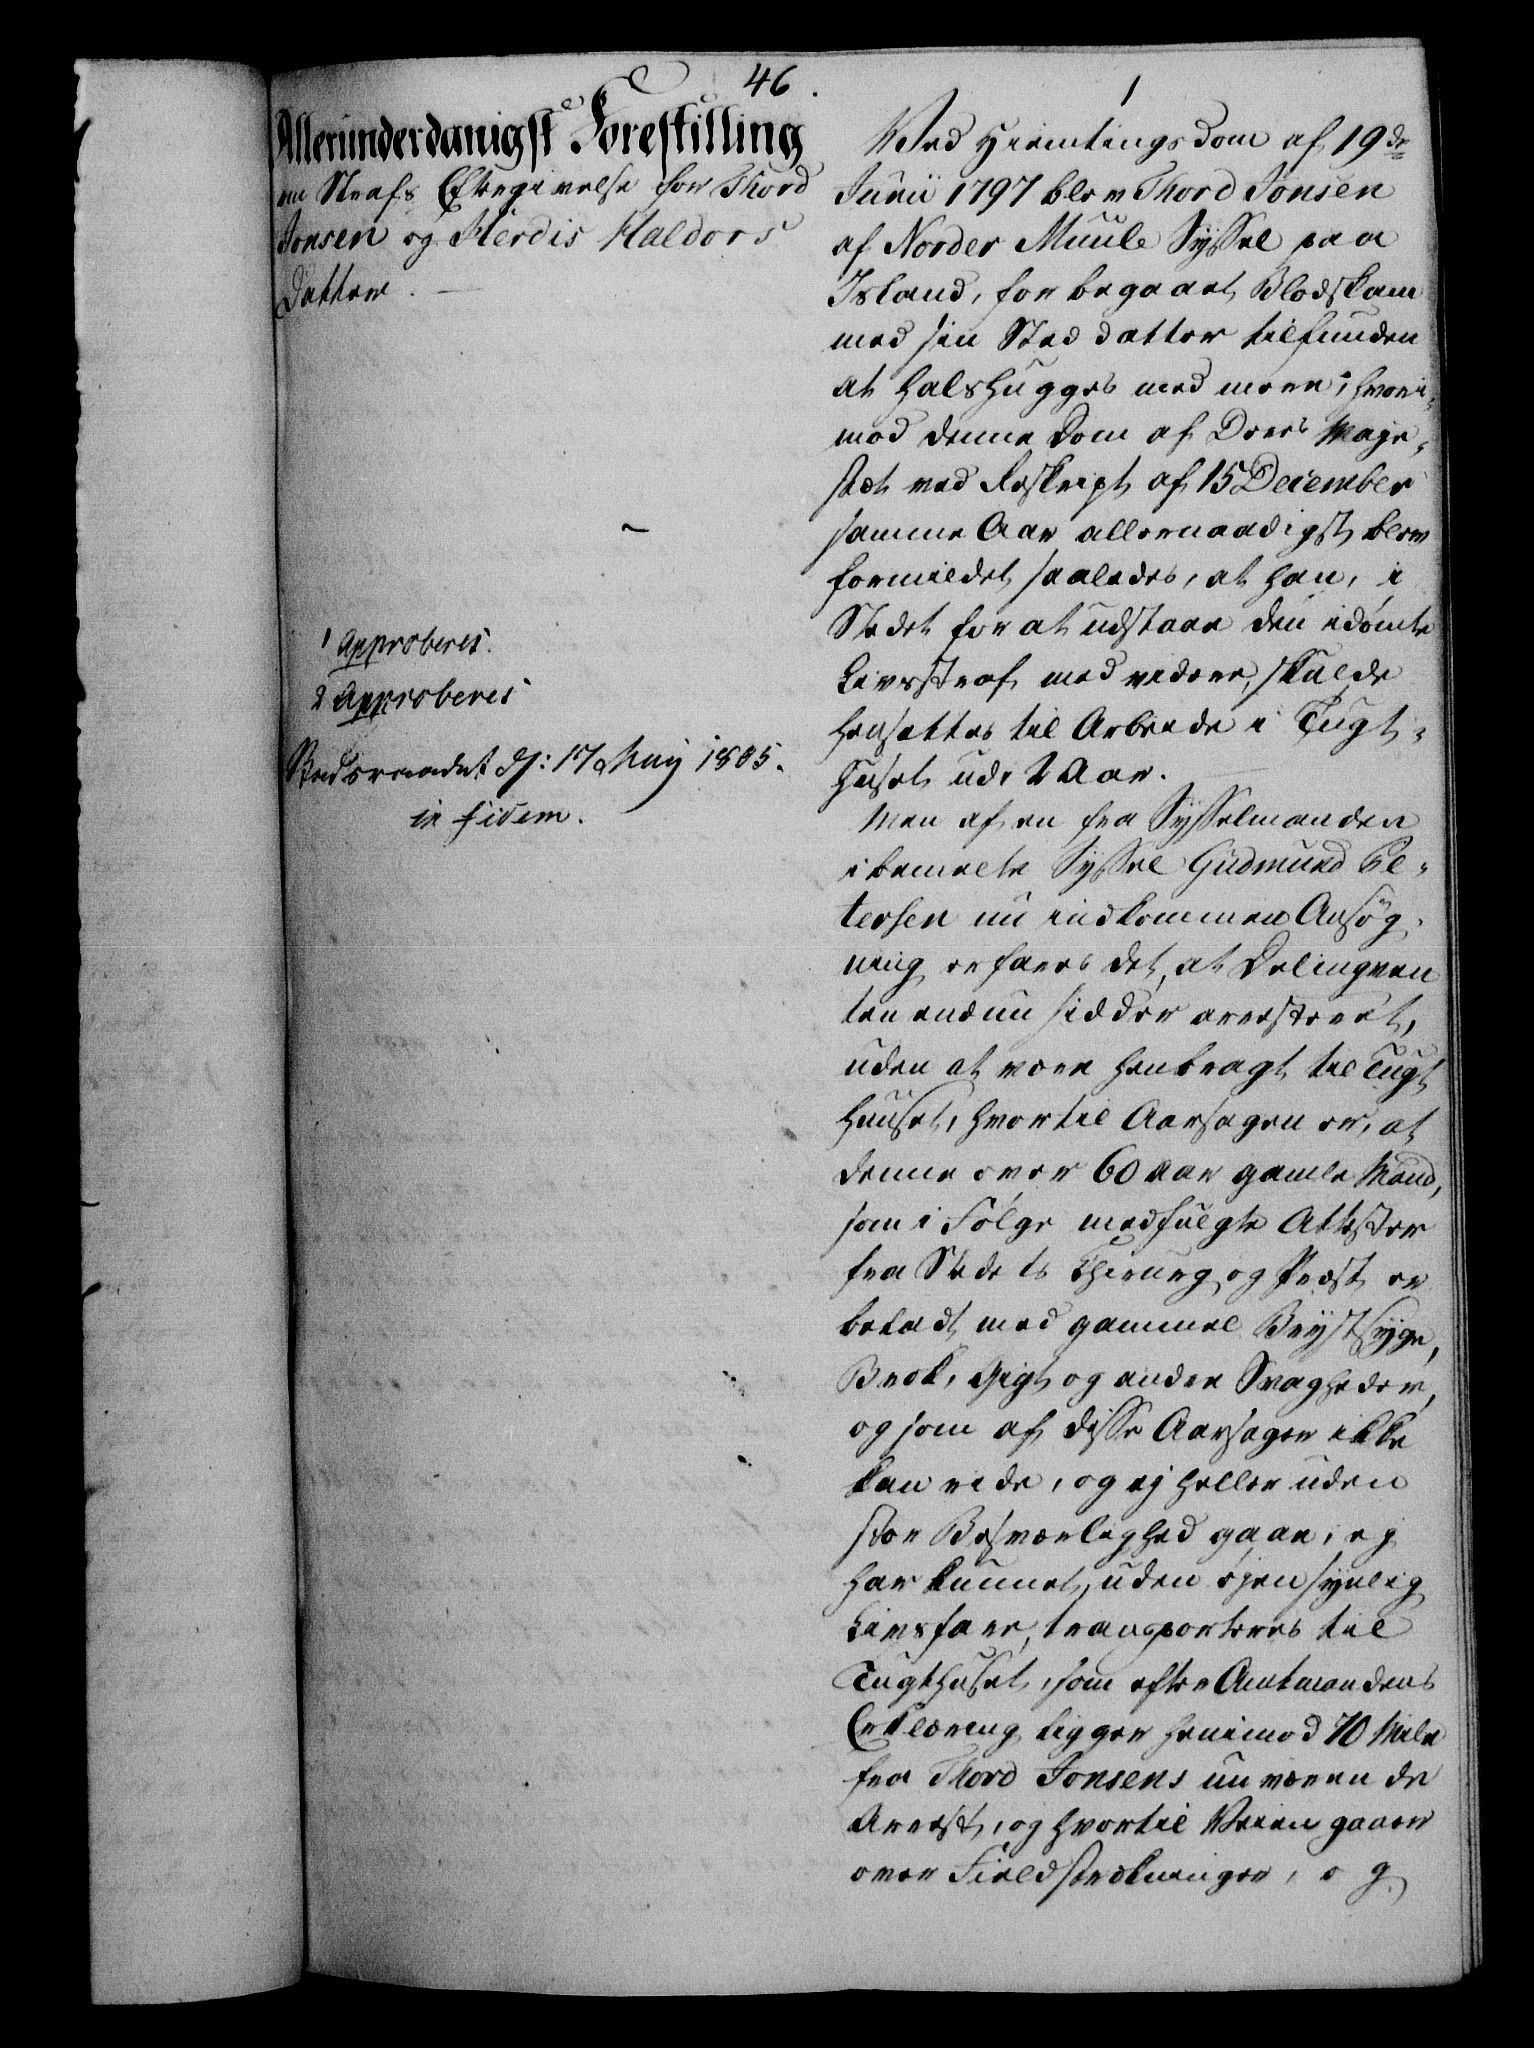 46.
Allerunderdanigst Forestilling
om Strafs Eftergivelse for Thord
Jonsen og Herdis Haldors
Datter.
1 Approberes.
2 Approberes
Statsraadet d: 17 May 1805.
in fidem.
1
Ved Hiemtingsdom af 19de
Junii 1797 blev Thord Jonsen
af Norder Muule Syssel paa
Island, for begaaet Blodskam
med sin Sted datter tilfunden
at halshugges med mere; hvori-
mod denne Dom af Deres Maje-
stæt ved Reskript af 15 December
samme Aar allernaadigst blev
formildet saaledes, at han, i
Stedet for at udstaae den idømte
Livsstraf med videre, skulde
hensættes til Arbeide i Tugt-
huset udi 2 Aar.
Men af en fra Sysselmanden
i bemelte Syssel Gudmund Pe-
tersen nu indkommen Ansøg-
ning erfares det, at Delinqven
ten endnu sidder arresteret,
uden at være henbragt til Tugt
huuset, hvortil Aarsagen er, at
denne over 60 Aar gamle Mand,
som i Følge medfulgte Attester
fra Stedets Chirurg og Præst er
beladt med gammel Brystsyge,
Brok, Gigt og anden Svagheder,
og som af disse Aarsager ikke
kan ride, og ej heller uden
stor Besværlighed gaae, ej
har kunnet, uden øjensynlig
Livsfare, transporteres til
Tugthuset, som efter Amtmandens
Erklæring ligger henimod 70 Mile
fra Thord Jonsens nuværende
Arrest, og hvortil Veien gaaer
over Fieldstrækninger, og